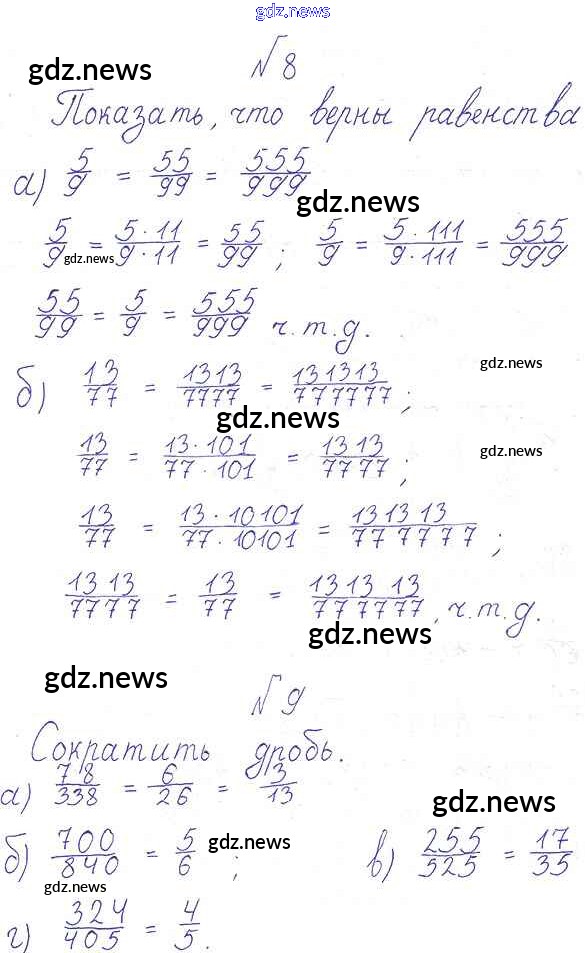 gdz.news
№8
gdz.news
Показать, что верны равенства
а) 5/9 = 55/99 = 555/999
gdz.news
5/9 = 5·11/9·11 = 55/99; 5/9 = 5·111/9·111 = 555/999
gdz.news
55/99 = 5/9 = 555/999 ч.т.д.
б) 13/77 = 1313/7777 = 131313/777777;
gdz.news
gdz.news
13/77 = 13·101/77·101 = 1313/7777;
gdz.news
13/77 = 13·10101/77·10101 = 131313/777777;
1313/7777 = 13/77 = 131313/777777, ч.т.д.
gdz.news
gdz.news
№9
Сократить дробь.
а) 78/338 = 6/26 = 3/13
gdz.news
б) 700/840 = 5/6; в) 255/525 = 17/35
gdz.news
gdz.news
г) 324/405 = 4/5.